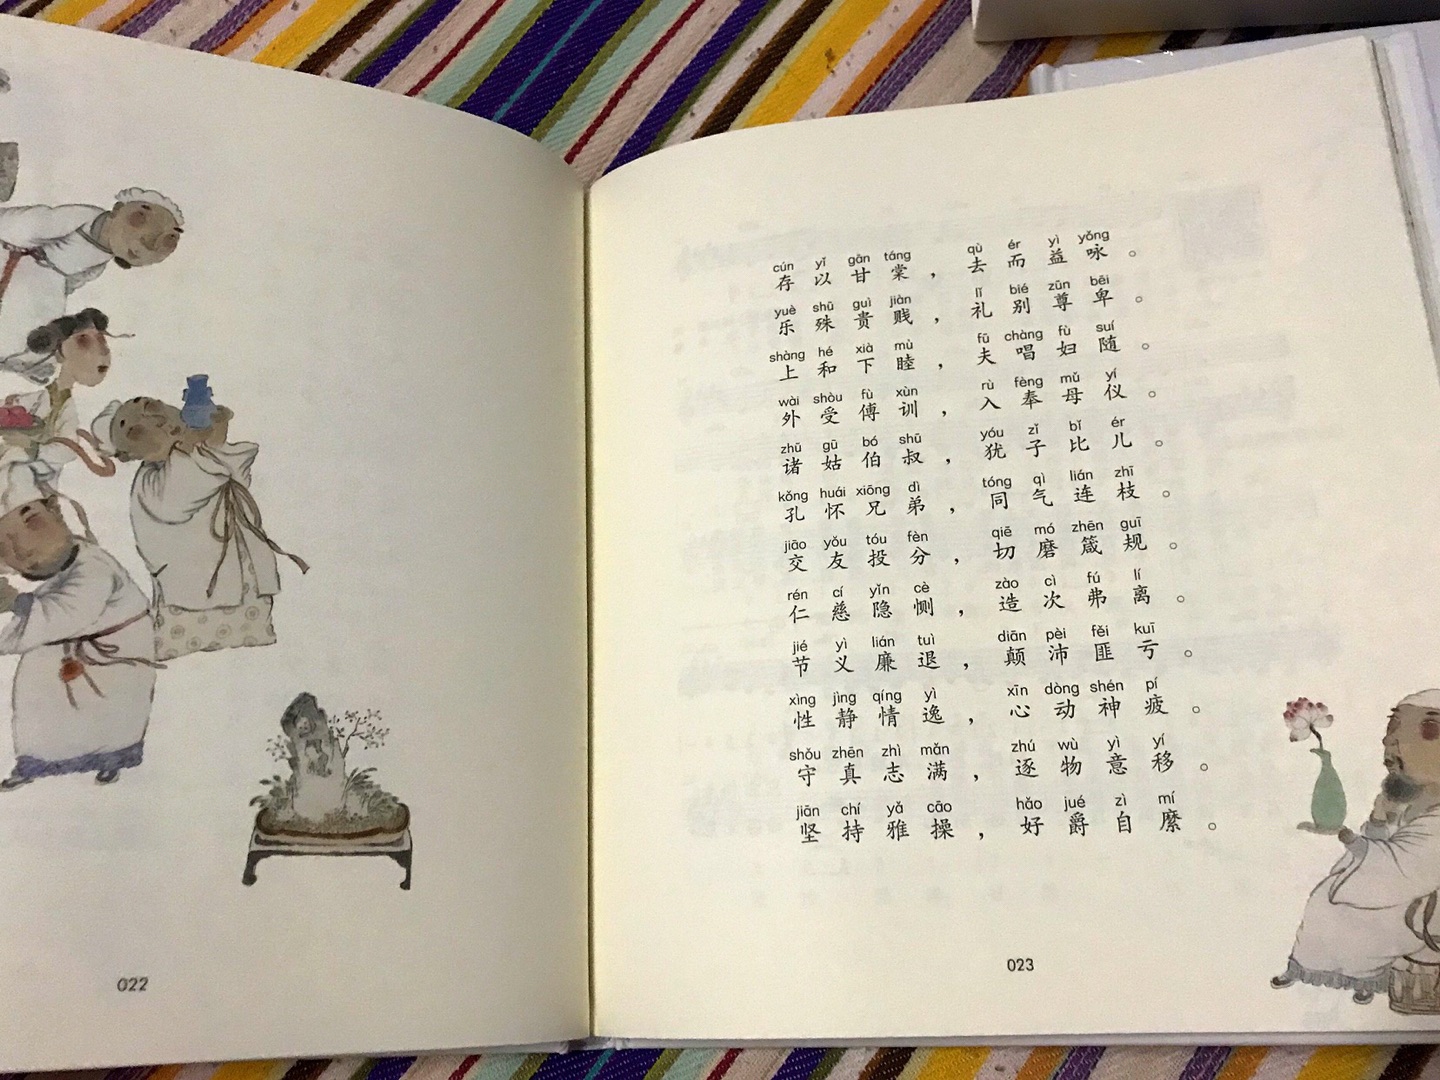 cún yǐ gān táng qù ér yì yǒng
存以甘棠，去而益咏。
yuè shū guì jiàn lǐ bié zūn bēi
乐殊贵贱，礼别尊卑。
shàng hé xià mù fū chàng fù suí
上和下睦，夫唱妇随。
wài shòu fù xùn rù fèng mǔ yí
外受傅训，入奉母仪。
zhū gū bó shū yóu zǐ bǐ ér
诸姑伯叔，犹子比儿。
kǒng huái xiōng dì tóng qì lián zhī
孔怀兄弟，同气连枝。
jiāo yǒu tóu fèn qiē mó zhēn guī
交友投分，切磨箴规。
rén cí yǐn cè zào cì fú lí
仁慈隐恻，造次弗离。
jié yì lián tuì diān pèi fěi kuī
节义廉退，颠沛匪亏。
xìng jìng qíng yì xīn dòng shén pí
性静情逸，心动神疲。
shǒu zhēn zhì mǎn zhú wù yì yí
守真志满，逐物意移。
jiān chí yǎ cāo hǎo jué zì mí
坚持雅操，好爵自縻。
022
023